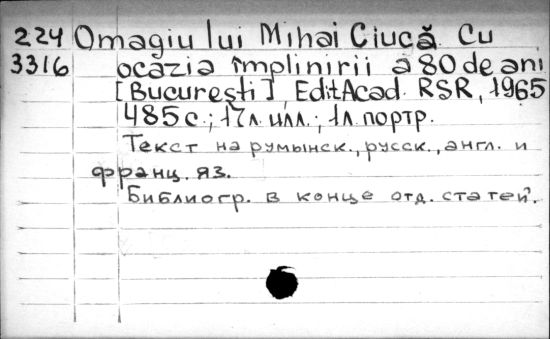 224 Omagiu lui Mihai Ciucă Cu
3316 ocazia împlinirii a 80 de ani
[Bucureşti], Edit Acad. RSR, 1965
485 с.; 17 л. илл.; 1 л. портр.
Текст на румынск., русск., англ. и
франц. яз.
Библиогр. в конце отд. статей.